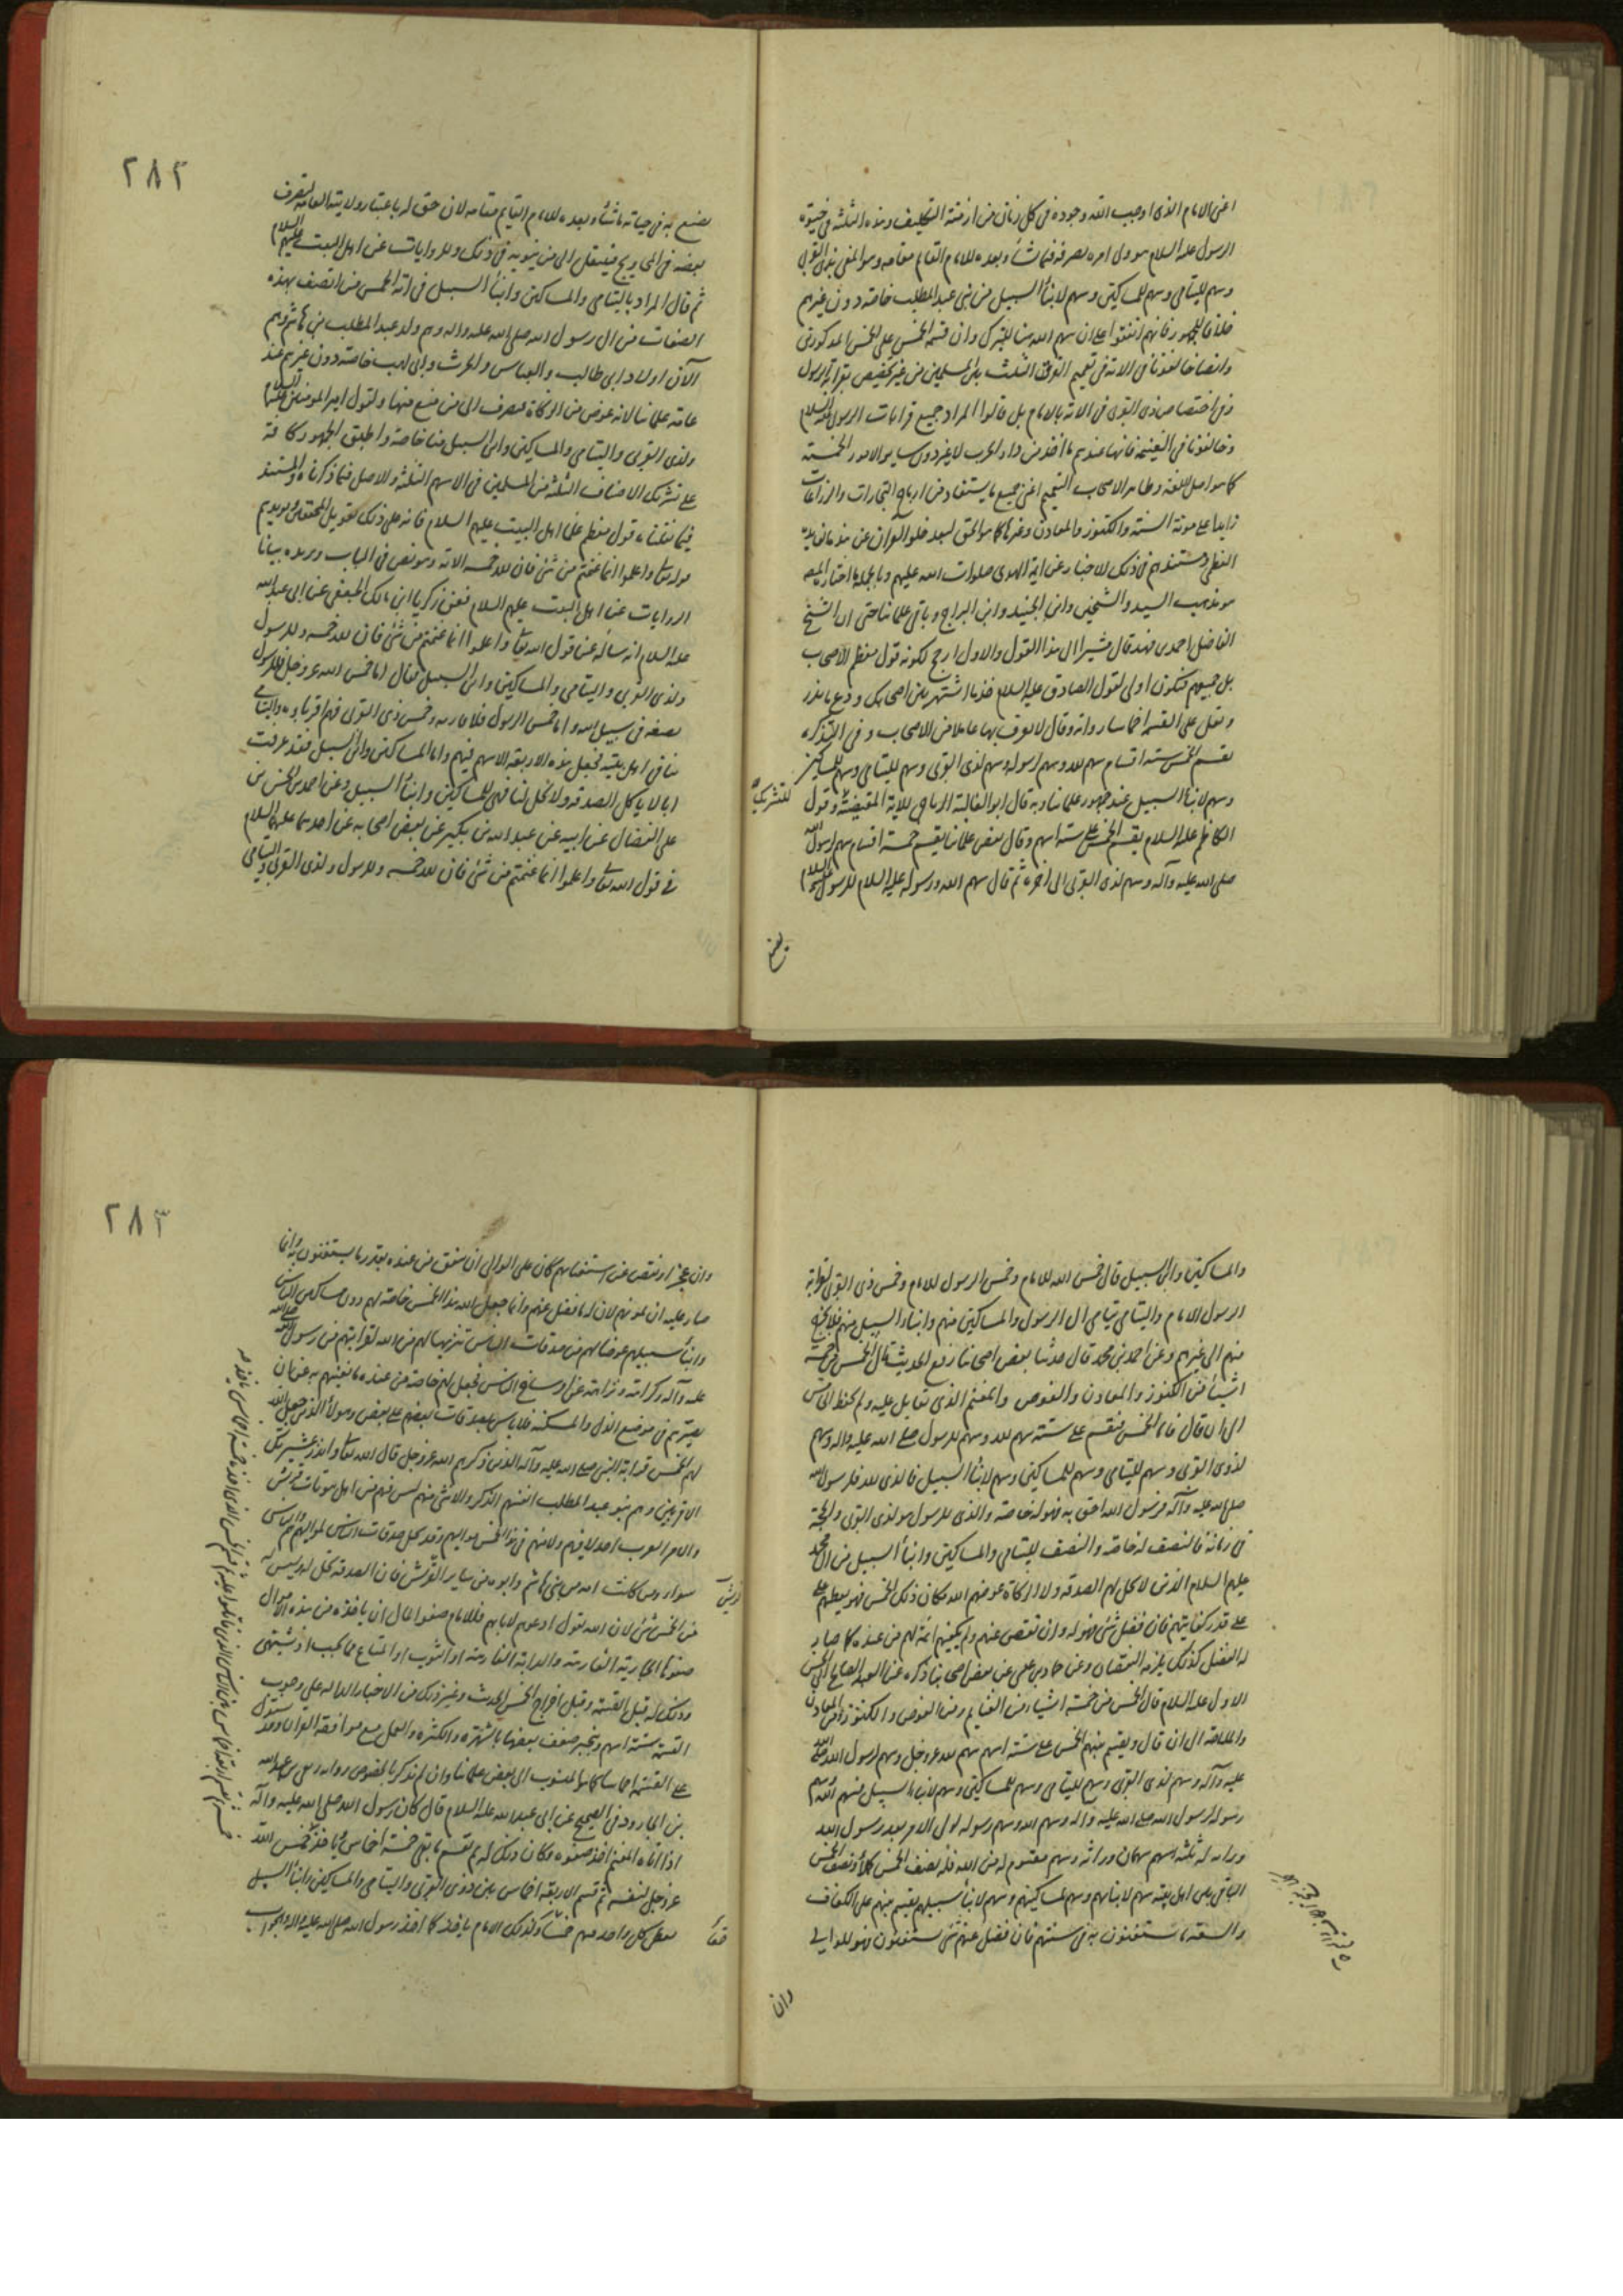 اعنى الامام الذى اوجب الله وجوده فى كل زمان من ازمنة التكليف وهذه الثلثة فى حيوة
الرسول عليه السلام هو ولى امره يصرفه فيما شاء وبعده للامام القائم مقامه وهو المعنى بذى القربى
وسهم لليتامى وسهم للمساكين وسهم لابناء السبيل من بنى عبد المطلب خاصة دون غيرهم
خلافا للجمهور فانهم اتفقوا على ان سهم الله هنا للتبرك وان قسمة الخمس على الخمس المذكورين
وايضا خالفونا فى الاية فى تعميم الفرق الثلث باقى المسلمين من غير تخصيص بقرابة الرسول
وفى اختصاص ذى القربى فى الاية بالامام بل قالوا المراد جميع قرابات الرسول عليه السلام
وخالفونا فى الغنيمة فانها عندهم ما اخذ من دار الحرب لا غير دون ساير الامور الخمسة
كما هو اصل اللغة وظاهر الاصحاب التعميم اعنى جميع ما يستفاد من ارباح التجارات والزراعات
زايدا على مونة السنة والكنوز والمعادن وغيرها كما هو الحق لبعد خلو القران عن
مستندهم فى ذلك الاخبار عن ائمة الهدى صلوات الله عليهم وبالجملة ما اختاره المص
هو مذهب السيد والشيخين وابن الجنيد وابن البراج وباقى علمائنا حتى ان الشيخ
الفاضل احمد بن فهد قال مشيرا الى هذا القول والاول ارجح لكونه قول معظم الاصحاب
بل جميعهم فتكون اولى لقول الصادق عليه السلام خذ ما اشتهر بين اصحابك ودع ما ندر
ونقل على القسمة اخماسا رواية وقال لا يعرف بها عاملا من الاصحاب وفى التذكرة
يقسم الخمس ستة اقسام سهم لله وسهم لرسوله وسهم لذى القربى وسهم لليتامى وسهم للمساكين
وسهم لابناء السبيل عند جمهور علمائنا وبه قال ابو العالية الرياحى للاية المقتضية وقول
للتشريك
الكاظم عليه السلام يقسم الخمس على ستة اسهم وقال بعض علمائنا يقسم خمسة اقسام سهم لرسول الله
صلى الله عليه وآله وسهم لذى القربى الى اخره ثم قال سهم الله ورسوله عليه السلام للرسول
يصنع
٢٨٢
يصنع به فى حياته ما شاء وبعده للامام القايم مقامه لان حق له باعتبار ولايته العامة ليصرف
بعضه فى المحاويج فينتقل الى من ينوبه فى ذلك وللروايات عن اهل البيت عليهم السلام
ثم قال المراد باليتامى والمساكين وابناء السبيل فى اية الخمس من اتصف بهذه
الصفات من ال رسول الله صلى الله عليه واله وهم ولد عبد المطلب بن هاشم وهم
الآن اولاد ابى طالب والعباس والحرث وابى لهب خاصة دون غيرهم عند
عامة علمائنا لانه عوض من الزكاة فيصرف الى من منع منها ولقول امير المومنين
ولذى القربى واليتامى والمساكين وابن السبيل منا خاصة واطبق الجمهور كافة
على تشريك الاصناف الثلثة من المسلمين فى الاسهم الثلثة والاصل فيما ذكرناه والمستند
فيما نقلناه قول معظم علماء اهل البيت عليهم السلام فانه على ذلك تعويل المحققين ويويده
قوله تعالى واعلموا انما غنمتم من شئ فان لله خمسه الاية وهو نص فى الباب ويزيده بيانا
الروايات عن اهل البيت عليهم السلام فعن زكريا ابن مالك الجعفى عن ابى عبد الله
عليه السلام انه سأله عن قول الله تعالى واعلموا انما غنمتم من شئ فان لله خمسه وللرسول
ولذى القربى واليتامى والمساكين وابن السبيل فقال اما خمس الله عز وجل فللرسول
يضعه فى سبيل الله واما خمس الرسول فلاقاربه وخمس ذى القربى فهم اقرباؤه واليتامى
يتامى اهل بيته فجعل هذه الاربعة الاسهم فيهم واما المساكين وابن السبيل فقد عرفت
انا لا ياكل الصدقة ولا تحل لنا فهى للمساكين وابناء السبيل وعن احمد بن الحسن بن
على الفضال عن ابيه عن عبد الله بن بكير عن بعض اصحابه عن احدهما عليهما السلام
فى قول الله تعالى واعلموا انما غنمتم من شئ فان لله خمسه وللرسول ولذى القربى واليتامى
والمساكين وابن السبيل قال خمس الله للامام وخمس الرسول للامام وخمس ذى القربى لقرابة
الرسول الامام واليتامى يتامى ال الرسول والمساكين منهم وابناء السبيل منهم فلا يخرج
منهم الى غيرهم وعن احمد بن محمد قال حدثنا بعض اصحابنا رفع الحديث قال الخمس من خمسة
اشياء من الكنوز والمعادن والغوص والمغنم الذى تقاتل عليه ولم يحفظ الخامس
الى ان قال فاما الخمس فيقسم على ستة سهم لله وسهم للرسول صلى الله عليه واله وسهم
لذوى القربى وسهم لليتامى وسهم للمساكين وسهم لابناء السبيل فالذى لله فلرسول الله
صلى الله عليه وآله فرسول الله احق به فهو له خاصة والذى للرسول هو لذى القربى والحجة
فى زمانه فالنصف له خاصة والنصف لليتامى والمساكين وابناء السبيل من ال محمد
عليهم السلام الذين لا تحل لهم الصدقة ولا الزكاة عوضهم الله مكان ذلك الخمس فهو يعطيهم
على قدر كفايتهم فان فضل شئ فهو له وان نقص عنهم ولم يكفهم اتمه لهم من عنده كما صار
له الفضل كذلك يلزمه النقصان وعن حماد بن عيسى عن بعض اصحابنا ذكره عن العبد الصالح ابى الحسن
الاول عليه السلام قال الخمس من خمسة اشياء من الغنايم ومن الغوص والكنوز ومن المعادن
والملاحة الى ان قال ويقسم بينهم الخمس على ستة اسهم سهم لله عز وجل وسهم لرسول الله
عليه وآله وسهم لذى القربى وسهم لليتامى وسهم للمساكين وسهم لابناء السبيل فسهم الله وسهم
رسوله لرسول الله صلى الله عليه واله وسهم الله وسهم رسوله لولى الامر بعد رسول الله
وراثة له ثلثة اسهم سهمان وراثة وسهم مقسوم له من الله فله نصف الخمس كملا ونصف الخمس
الباقى بين اهل بيته سهم لايتامهم وسهم لمساكينهم وسهم لابناء سبيلهم يقسم بينهم على الكفاف
والسعة ما يستغنون به فى سنتهم فان فضل عنهم شئ يستغنون فهو للوالى
وان
٢٨٣
وان عجز او نقص عن استغنائهم كان على الوالى ان ينفق من عنده بقدر ما يستغنون به وانما
صار عليه ان يمونهم لان له ما فضل عنهم وانما جعل الله هذا الخمس خاصة لهم دون مساكين الناس
وابناء سبيلهم عوضا لهم من صدقات الناس تنزيها لهم من الله لقرابتهم من رسول الله
عليه وآله وكرامة وتزايته عن اوساخ الناس فجعل لهم خاصة من عنده ما يغنيهم به عن ان
يصيرهم فى موضع الذل والمسكنة فلا باس بصدقات بعضهم على بعض وهؤلاء الذين جعل الله
لهم الخمس قرابة النبى صلى الله عليه وآله الذين ذكرهم الله عز وجل قال الله تعالى وانذر عشيرتك
الاقربين وهم بنو عبد المطلب انفسهم الذكر والانثى منهم ليس فيهم من اهل بيوتات قريش
ولا من العرب احد لا فيهم ولا منهم فى هذا الخمس مواليهم وقد تحل صدقات الناس لمواليهم هم والناس
سواء ومن كانت امه من بنى هاشم وابوه من ساير القريش فان الصدقة تحل له وليس له
قريش
من الخمس شئ لان الله يقول ادعوهم لابائهم فللامام صفو المال ان ياخذه من هذه الاموال
صفوها الجارية الفارهة والدابة الفارهة او الثوب او المتاع مما يحب او يشتهى
وذلك له قبل القسمة وقبل اخراج الخمس الحديث وغير ذلك من الاخبار الدالة على وجوب
القسمة ستة اسهم وينجبر ضعف بعضها بالشهرة والكثرة والعمل مع موافقة القران وقد يستدل
على القسمة اخماسا كما هو المنسوب الى بعض علمائنا وان لم يذكر بالخصوص رواية ربعى بن عبد الله
بن الجارود فى الصحيح عن ابى عبد الله عليه السلام قال كان رسول الله صلى الله عليه وآله
اذا اتاه المغنم اخذ صفوه وكان ذلك له ثم يقسم ما بقى خمسة اخماس ثم ياخذ خمس الله
عز وجل لنفسه ثم قسم الاربعة اخماس بين ذوى القربى واليتامى والمساكين وابناء السبيل
يعطى كل واحد منهم حقا وكذلك الامام ياخذ كما اخذ رسول الله صلى الله عليه واله والجواب
حقا